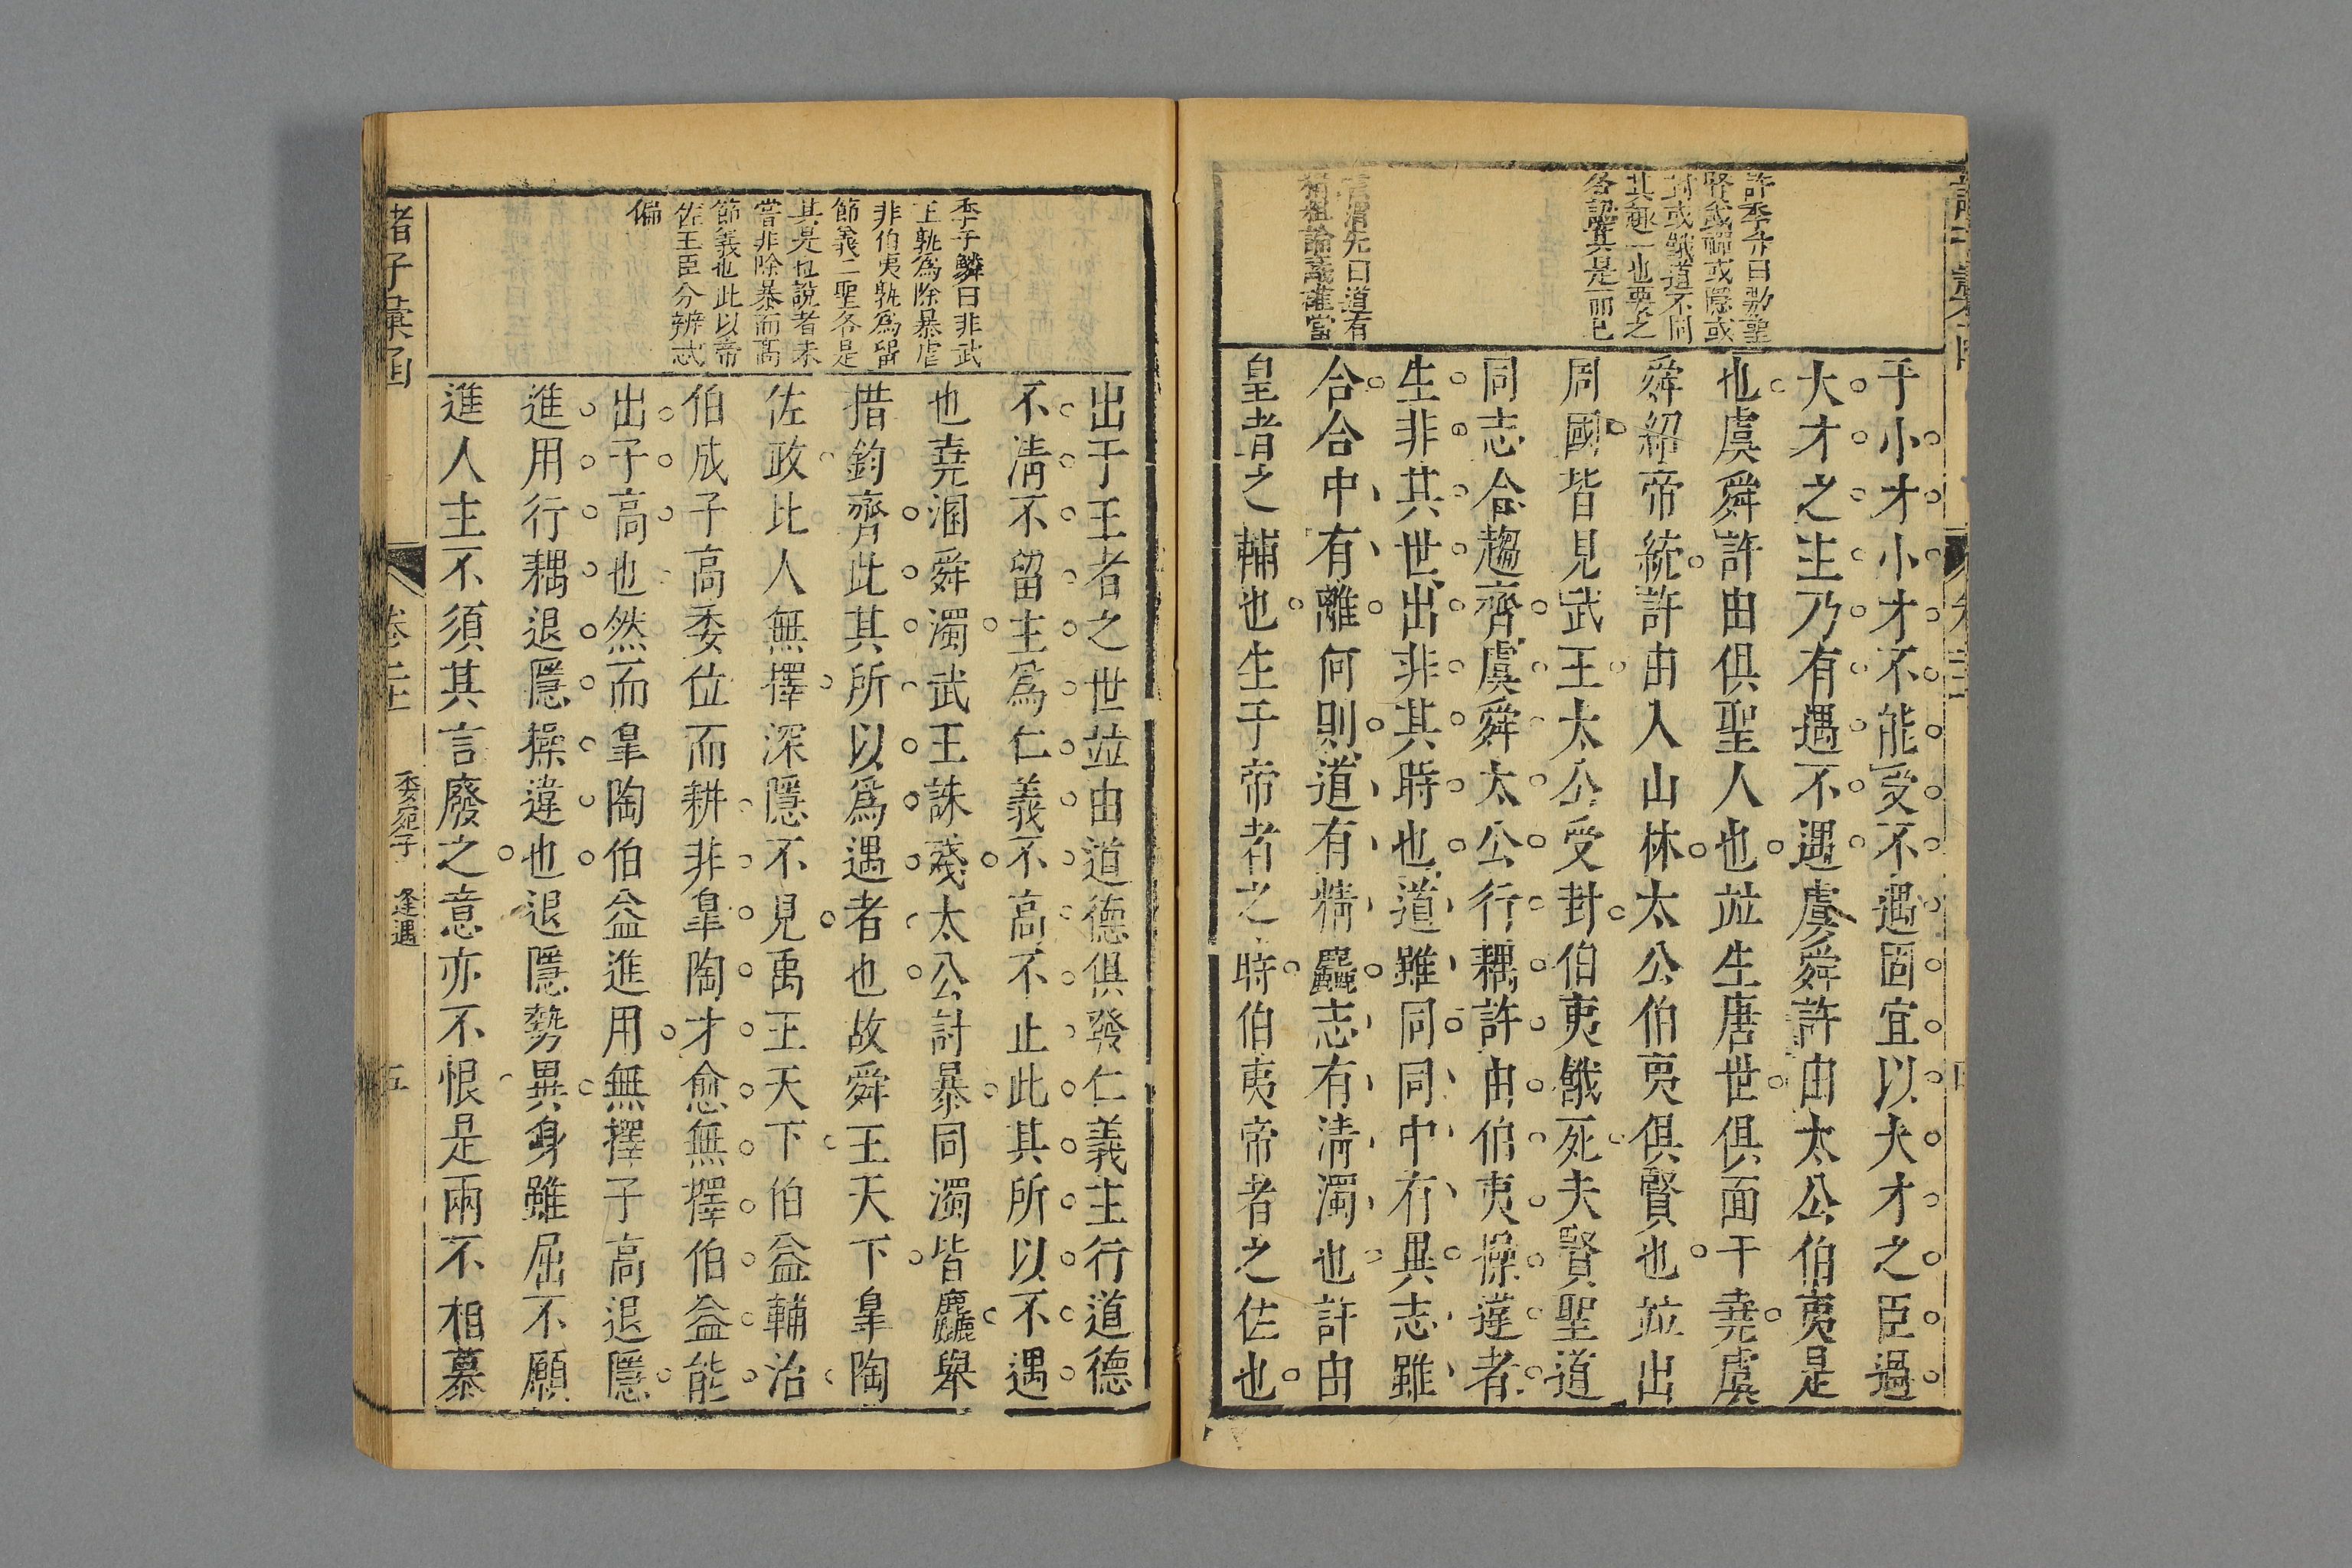 許季分曰數聖
賢或禪或隱或
封或餓道不同
其趣一也要之
各認其是而已
道有
論議確當
于小才小才不能受不遇固宜以大才之臣遇
大才之主乃有遇不遇虞舜許由太公伯夷是
也虞舜許由俱聖人也並生唐世俱面于堯虞
舜紹帝統許由入山林太公伯夷俱賢也並出
周國皆見武王太公受封伯夷餓死夫賢聖道
同志合趨齊虞舜太公行耦許由伯夷操違者
生非其世出非其時也道雖同同中有異志雖
合合中有離何則道有精麤志有清濁也許由
皇者之輔也生于帝者之時伯夷帝者之佐也
季子鱗曰非武
王孰為除暴虐
非伯夷孰為留
節義二聖各是
其是也說者未
嘗非除暴而高
節義也此以帝
佐王臣分辨忒
偏
出于王者之世並由道德俱發仁義主行道德
不清不留主為仁義不高不止此其所以不遇
也堯溷舜濁武王誅殘太公討暴同濁皆麤舉
措鈞齊此其所以為遇者也故舜王天下皐陶
佐政比人無擇深隱不見禹王天下伯益輔治
伯成子高委位而耕非皐陶才愈無擇伯益能
出子高也然而皐陶伯益進用無擇子高退隱
進用行耦退隱操違也退隱勢異身雖屈不願
進人主不須其言廢之意亦不恨是兩不相慕
諸子彙函
委宛子
逢遇
五